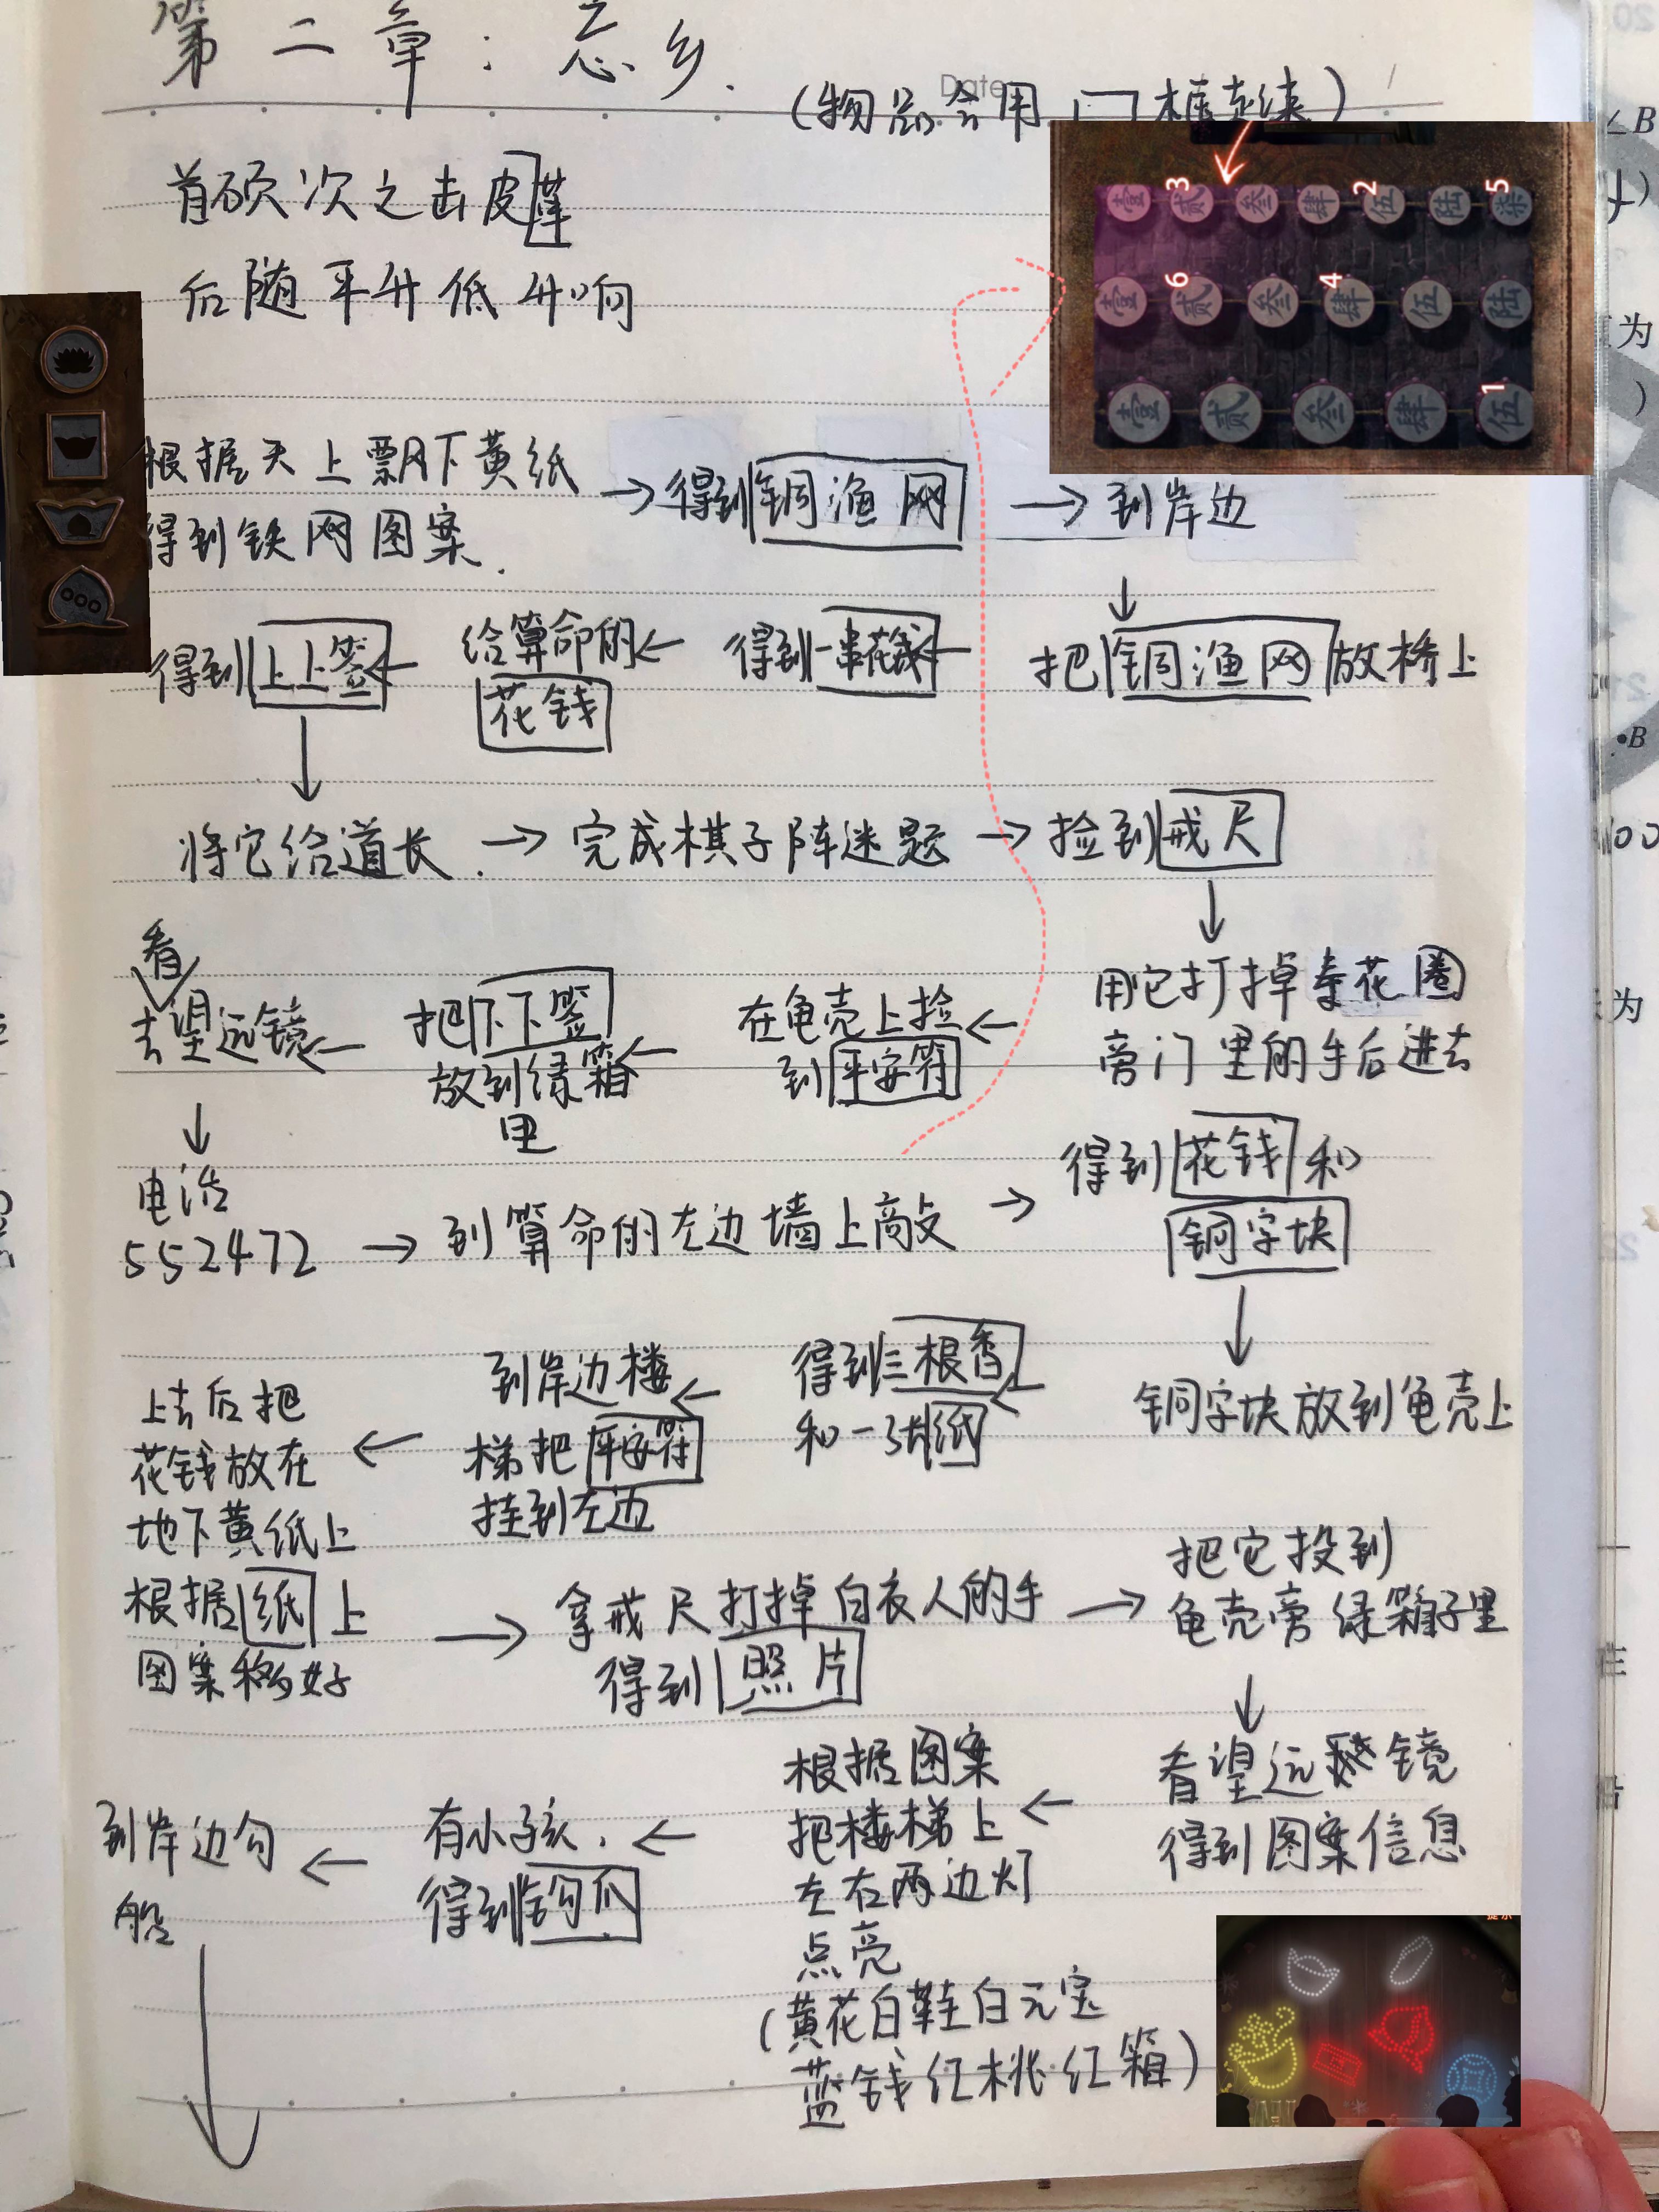 第二章:忘乡.
Date
(物品会用门框起来)
首硕次之击皮革
后随平升低升响
3 2 5
壹 贰 叁 肆 伍 陆 柒
6 4
壹 贰 叁 肆 伍 陆
1
壹 贰 叁 肆 伍
根据天上飘下黄纸
得到铁网图案.
→得到铜渔网
→到岸边
↓
把铜渔网放桥上
←得到一串花钱
←给算命的
花钱
←得到上上签
↓
将它给道长.→完成棋子阵迷题→捡到戒尺
↓
用它打掉寿花圈
旁门里的手后进去
←在龟壳上捡
到平安符
←把下下签
放到绿箱
里
←去看望远镜
↓
电话
552472→到算命的左边墙上敲→
得到花钱和
铜字块
↓
铜字块放到龟壳上
←得到三根香
和一张纸
←到岸边楼
梯把平安符
挂到左边
←上去后把
花钱放在
地下黄纸上
根据纸上
图案移好
→拿戒尺打掉白衣人的手
得到照片
→把它投到
龟壳旁绿箱子里
↓
看望远镜
得到图案信息
←根据图案
把楼梯上
左右两边灯
点亮
(黄花白鞋白元宝
蓝钱红桃红箱)
←有小孩.
得到钩爪
←到岸边勾
船
↓
提示